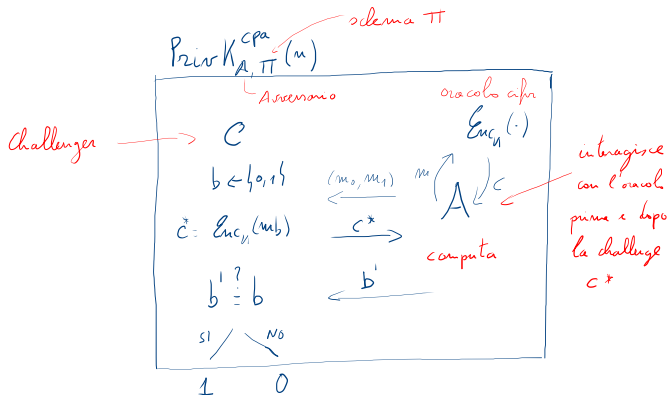 schema Π
PrivK^{cpa}_{A,Π}(n)
Avversario
oracolo cifr
Challenger
C
Enc_k(·)
b ← {0,1}
(m_0, m_1)
m
c
A
interagisce
con l'oracolo
prima e dopo
la challenge
c*
c* = Enc_k(mb)
c*
computa
b' ≟ b
b'
SI
NO
1
0